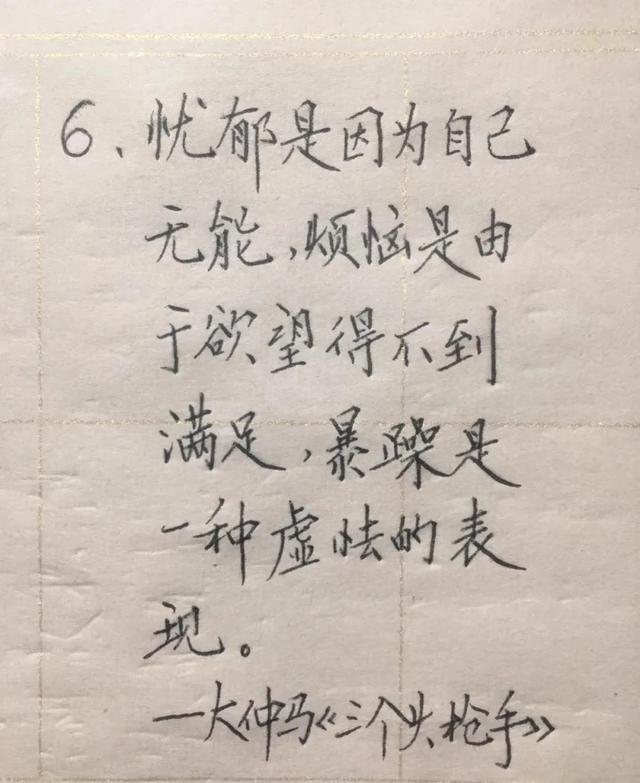 6、忧郁是因为自己
无能,烦恼是由
于欲望得不到
满足,暴躁是
一种虚怯的表
现。
—大仲马《三个火枪手》